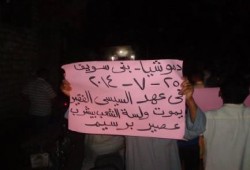 ديوشيا - بنى سويف
٢٥ - ٧ - ٢٠١٤
فى عهد السيسى الفقير
يموت ولسة الشعب بيشرب
عصير برسيم